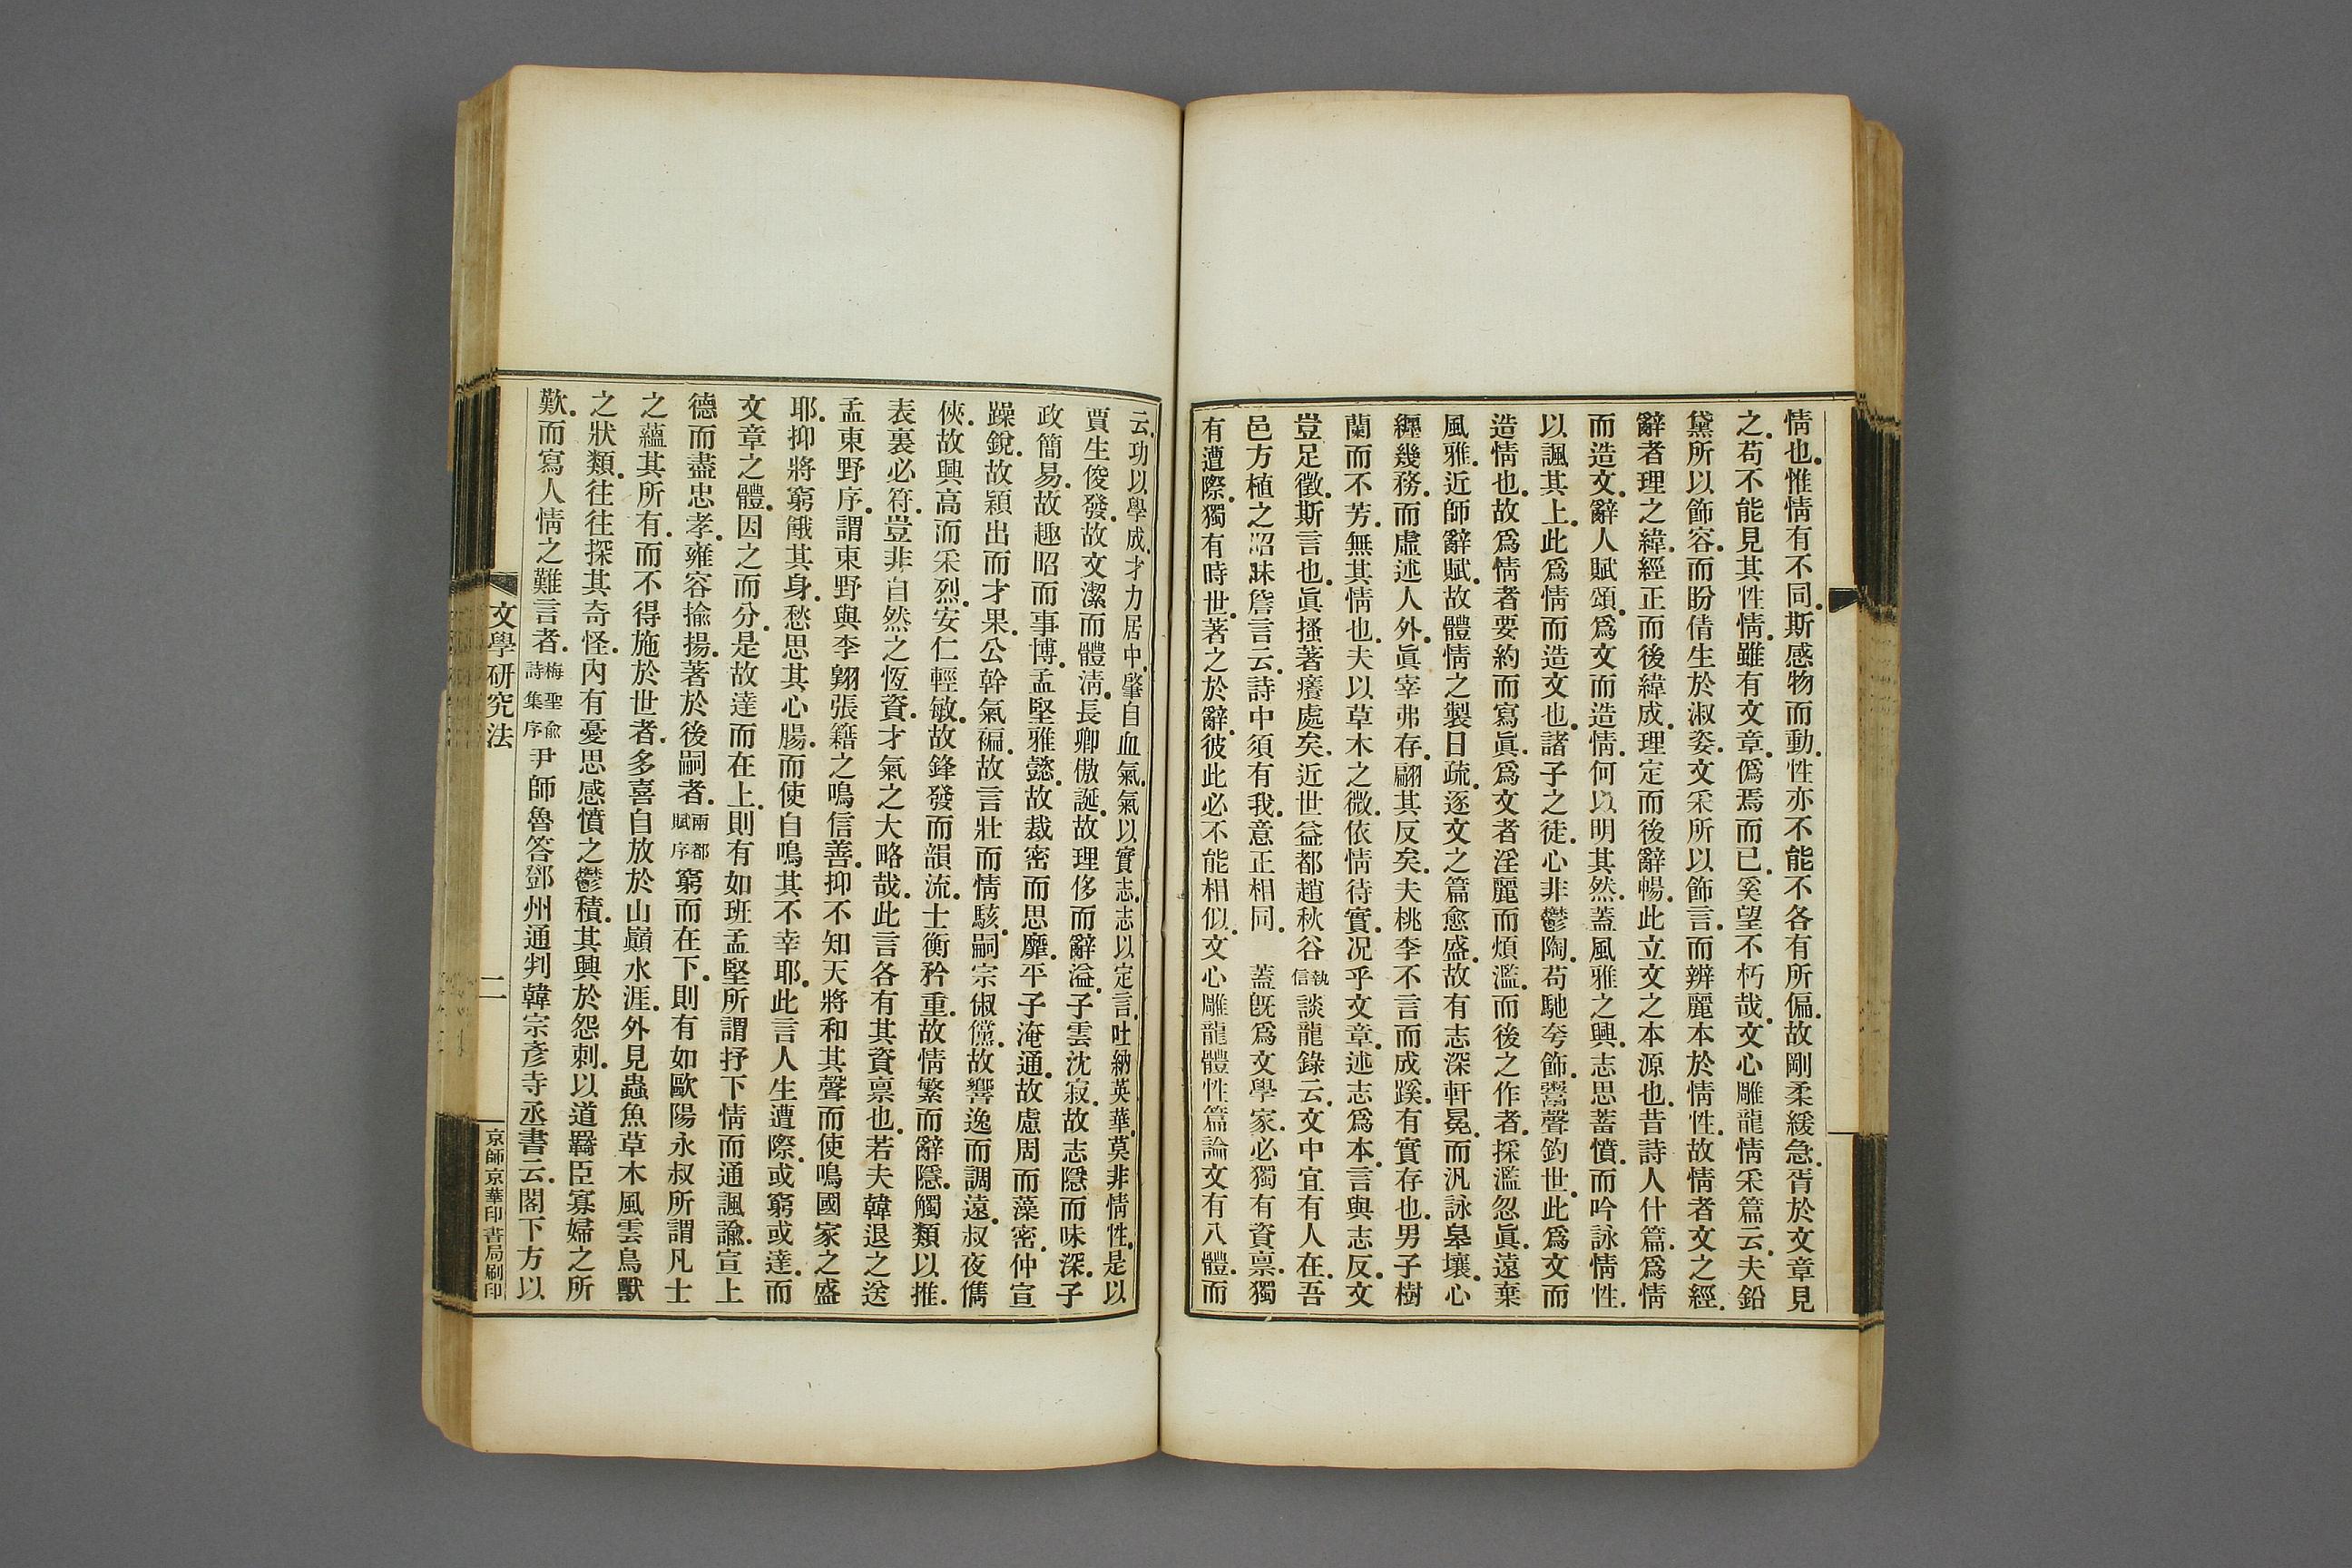 情也惟情有不同斯感物而動性亦不能不各有所偏故剛柔緩急胥於文章見
之苟不能見其性情雖有文章僞焉而已奚望不朽哉文心雕龍情采篇云夫鉛
黛所以飾容而盼倩生於淑姿文采所以飾言而辨麗本於情性故情者文之經
辭者理之緯經正而後緯成理定而後辭暢此立文之本源也昔詩人什篇爲情
而造文辭人賦頌爲文而造情何以明其然蓋風雅之興志思蓄憤而吟詠情性
以諷其上此爲情而造文也諸子之徒心非鬱陶苟馳夸飾鬻聲釣世此爲文而
造情也故爲情者要約而寫眞爲文者淫麗而煩濫而後之作者採濫忽眞遠棄
風雅近師辭賦故體情之製日疏逐文之篇愈盛故有志深軒冕而汎詠皋壤心
纏幾務而虛述人外眞宰弗存翩其反矣夫桃李不言而成蹊有實存也男子樹
蘭而不芳無其情也夫以草木之微依情待實况乎文章述志爲本言與志反文
豈足徵斯言也眞搔著癢處矣近世益都趙秋谷執信談龍錄云文中宜有人在吾
邑方植之昭昧詹言云詩中須有我意正相同　蓋旣爲文學家必獨有資禀獨
有遭際獨有時世著之於辭彼此必不能相似文心雕龍體性篇論文有八體而
云功以學成才力居中肇自血氣氣以實志志以定言吐納英華莫非情性是以
賈生俊發故文潔而體淸長卿傲誕故理侈而辭溢子雲沈寂故志隱而味深子
政簡易故趣昭而事博孟堅雅懿故裁密而思靡平子淹通故慮周而藻密仲宣
躁銳故穎出而才果公幹氣褊故言壯而情駭嗣宗俶儻故響逸而調遠叔夜儁
俠故興高而采烈安仁輕敏故鋒發而韻流士衡矜重故情繁而辭隱觸類以推
表裏必符豈非自然之恆資才氣之大略哉此言各有其資禀也若夫韓退之送
孟東野序謂東野與李翶張籍之鳴信善抑不知天將和其聲而使鳴國家之盛
耶抑將窮餓其身愁思其心腸而使自鳴其不幸耶此言人生遭際或窮或達而
文章之體因之而分是故達而在上則有如班孟堅所謂抒下情而通諷諭宣上
德而盡忠孝雍容揄揚著於後嗣者兩都賦序窮而在下則有如歐陽永叔所謂凡士
之蘊其所有而不得施於世者多喜自放於山巔水涯外見蟲魚草木風雲鳥獸
之狀類往往探其奇怪內有憂思感憤之鬱積其興於怨刺以道羈臣寡婦之所
歎而寫人情之難言者梅聖俞詩集序尹師魯答鄧州通判韓宗彥寺丞書云閣下方以
文學研究法　二　京師京華印書局刷印